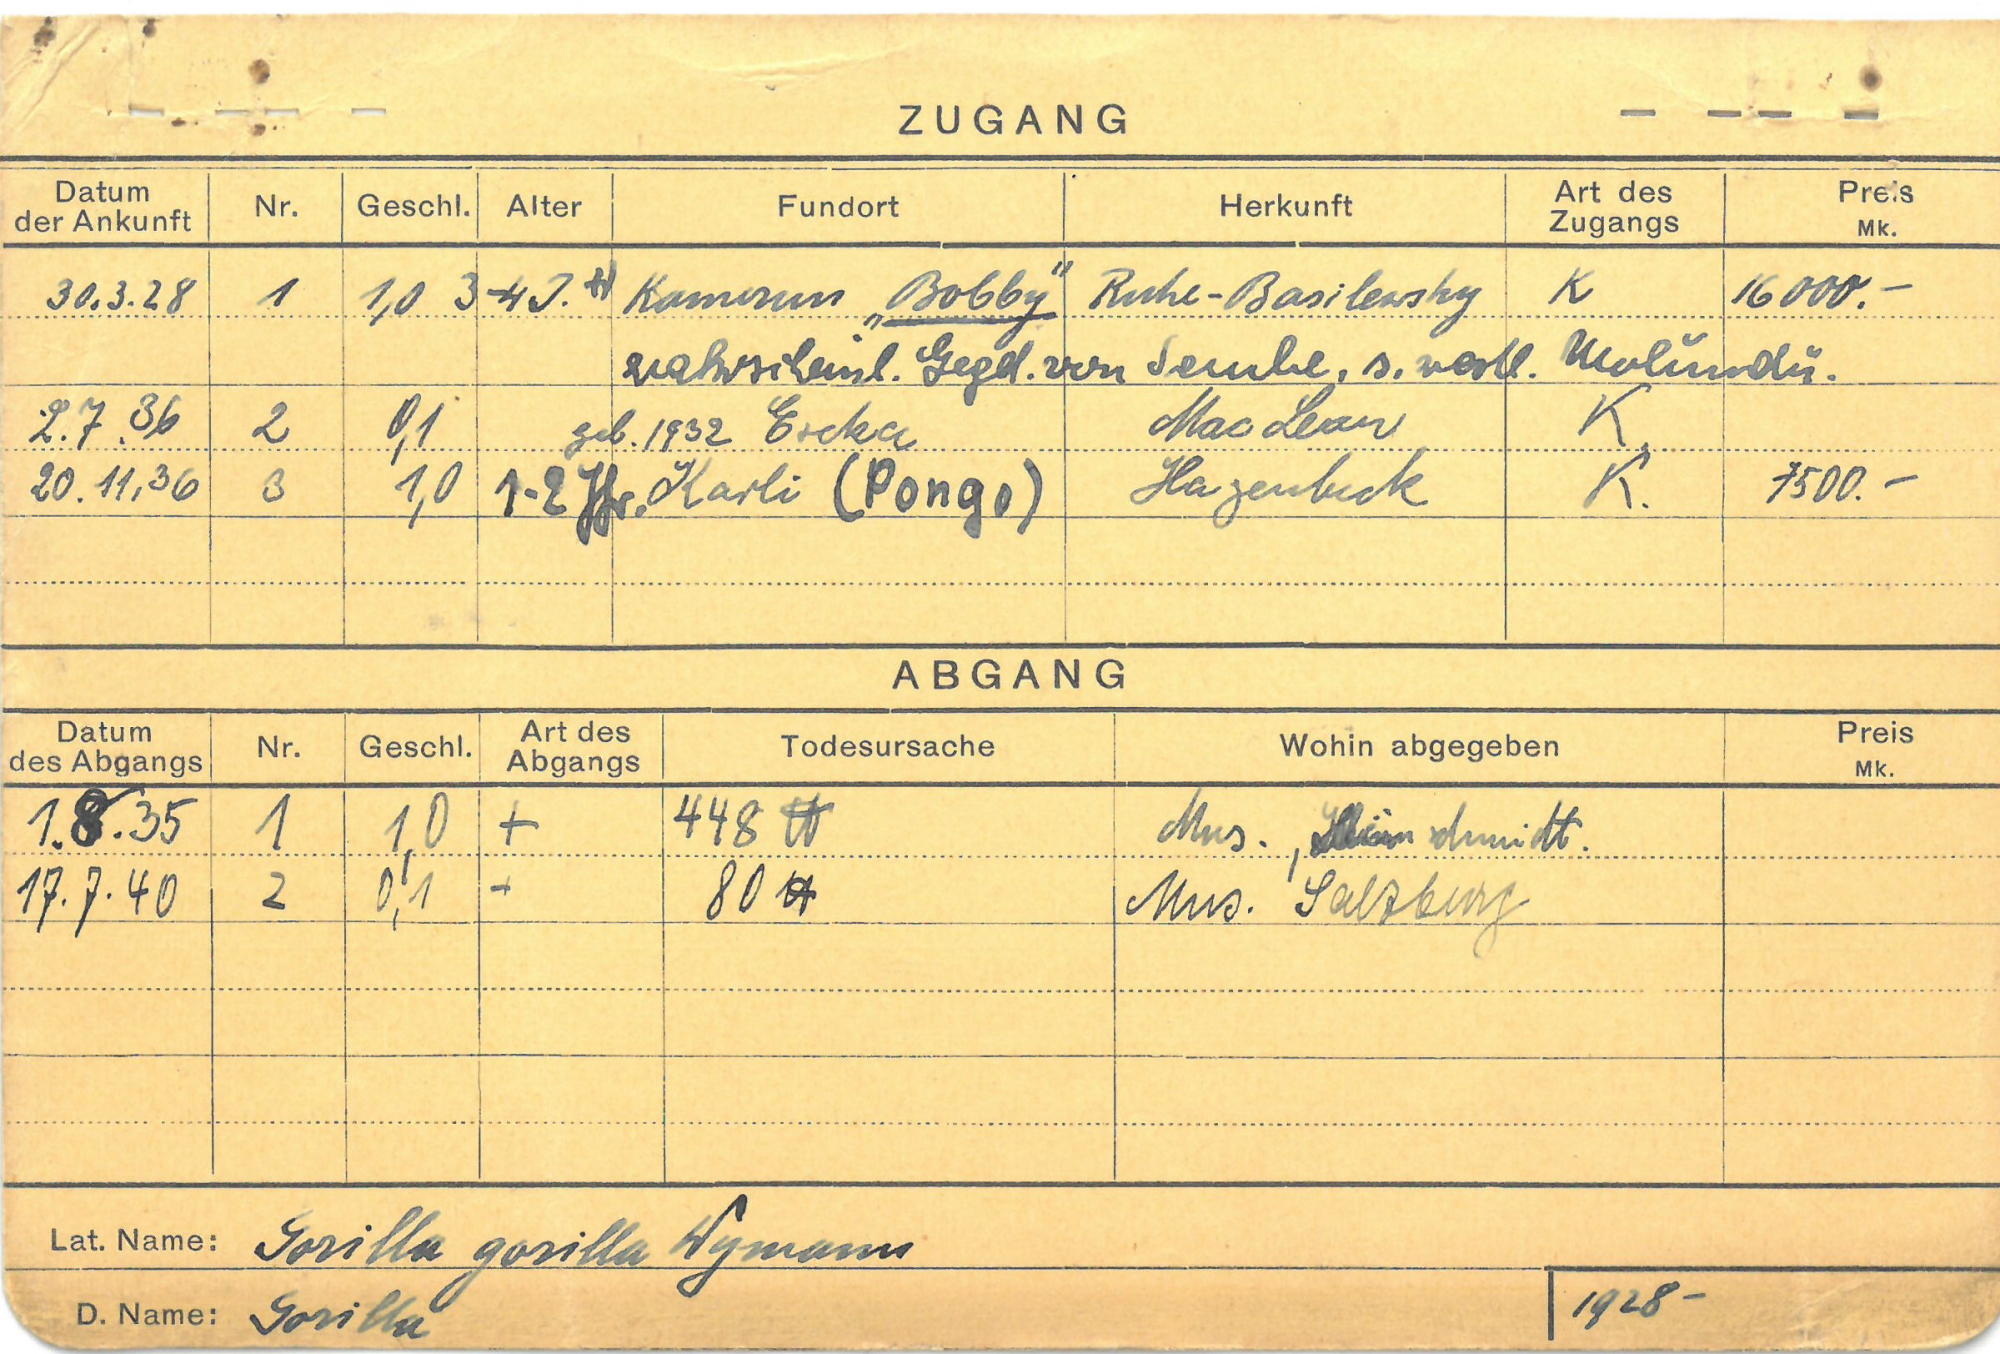 ZUGANG
Datum der Ankunft Nr. Geschl. Alter Fundort Herkunft Art des Zugangs Preis Mk.
30.3.28 1 1,0 3-4 J. Kamerun „Bobby" Ruhe-Basilewsky K 16000.-
wahrscheinl. Gegd. von Sembe, s. westl. Molundu.
2.7.36 2 0,1 geb. 1932 Mac Lean K.
20.11.36 3 1,0 1-2 Jhr. Karli (Pongo) Hagenbeck K. 7500.-
ABGANG
Datum des Abgangs Nr. Geschl. Art des Abgangs Todesursache Wohin abgegeben Preis Mk.
1.8.35 1 1,0 + 448 ℔ Mus.
17.7.40 2 0,1 + 80 ℔ Mus. Salzburg
Lat. Name: Gorilla gorilla Wymann
D. Name: Gorilla 1928-